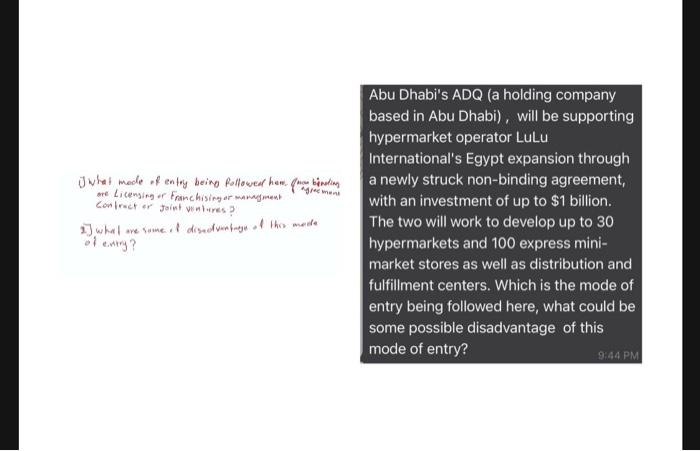 1) What mode of entry being followed here (non binding
agreement
are Licensing or Franchising or managment
Contract or Joint ventures?
2) what are some of disadvantage of this mode
of entry?
Abu Dhabi's ADQ (a holding company
based in Abu Dhabi) , will be supporting
hypermarket operator LuLu
International's Egypt expansion through
a newly struck non-binding agreement,
with an investment of up to $1 billion.
The two will work to develop up to 30
hypermarkets and 100 express mini-
market stores as well as distribution and
fulfillment centers. Which is the mode of
entry being followed here, what could be
some possible disadvantage of this
mode of entry?
9:44 PM